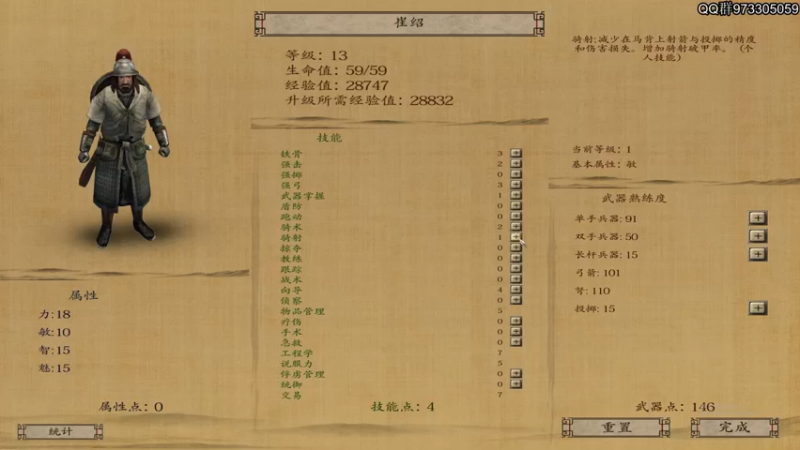 QQ群973305059
崔绍
等级：13
生命值：59/59
经验值：28747
升级所需经验值：28832
骑射:减少在马背上射箭与投掷的精度
和伤害损失。增加骑射破甲率。（个
人技能）
当前等级：1
基本属性：敏
技能
铁骨 3
强击 2
强掷 0
强弓 3
武器掌握 1
盾防 0
跑动 0
骑术 2
骑射 1
掠夺 0
教练 0
跟踪 0
战术 0
向导 4
侦察 0
物品管理 5
疗伤 0
手术 0
急救 0
工程学 7
说服力 5
俘虏管理 0
统御 0
交易 7
技能点：4
属性
力:18
敏:10
智:15
魅:15
属性点：0
统计
武器熟练度
单手兵器: 91
双手兵器: 50
长杆兵器: 15
弓箭: 101
弩: 110
投掷: 15
武器点：146
重置
完成